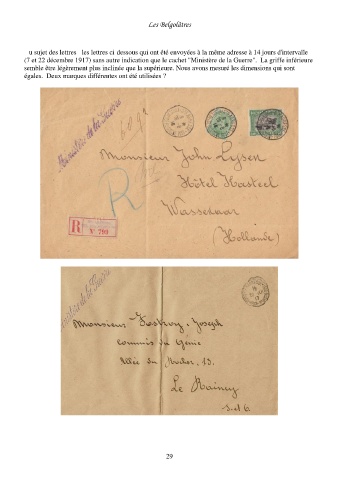 Les Belgolâtres
u sujet des lettres les lettres ci dessous qui ont été envoyées à la même adresse à 14 jours d'intervalle
(7 et 22 décembre 1917) sans autre indication que le cachet "Ministère de la Guerre". La griffe inférieure
semble être légèrement plus inclinée que la supérieure. Nous avons mesuré les dimensions qui sont
égales. Deux marques différentes ont été utilisées ?
Ministère de la Guerre
Monsieur John Lysen
Hôtel Kasteel
Wassenaar
(Hollande)
R
R
N 791
de la Guerre
Monsieur Joseph
Commis du Génie
Allée du 13.
Le Raincy
S. et O.
29